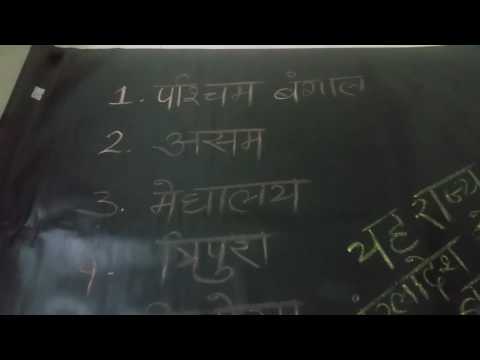 1. पश्चिम बंगाल
2. असम
3. मेघालय
4. त्रिपुरा
यह राज्य